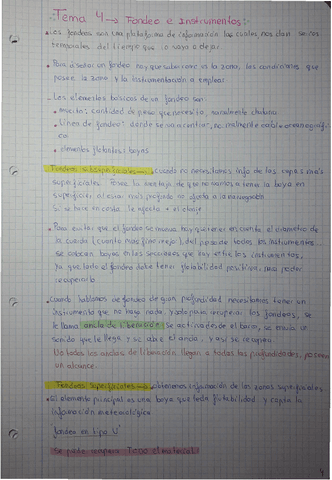 Tema 4 → Fondeo e Instrumentos:
• Los fondeos son una plataforma de información las cuales nos dan series
temporales del tiempo que lo vaya a dejar.
• Para diseñar un fondeo hay que saber como es la zona, las condiciones que
posee la zona y la instrumentación a emplear.
- Los elementos básicos de un fondeo son:
• muerto: cantidad de peso que necesito, normalmente chatarra
• línea de fondeo: donde se va a centrar, normalmente cable oceanográfi
co
• elementos globales: boyas
Fondeos subsuperficiales → cuando no necesitamos info de las capas más
superficiales. Posee la ventaja de que no vamos a tener la boya en
superficie, al estar más profundo no afecta a la navegación
Si se hace en costa, le afecta + el oleaje
• Para evitar que el fondeo se mueva hay que tener en cuenta el diámetro de
la cuerda (cuanto más fino mejor), del peso de todos los instrumentos.
Se colocan boyas en las secciones que hay entre los instrumentos,
ya que todo el fondeo debe tener flotabilidad positiva, para poder
recuperarlo
• Cuando hablamos de fondeo de gran profundidad necesitamos tener un
instrumento que no haya nada, y sólo para recuperar los fondeos, se
le llama ancla de liberación, se activa desde el barco, se envía un
sonido que le llega y se abre el ancla, y así se recupera.
No todas las anclas de liberación llegan a todas las profundidades, poseen
un alcance.
Fondeos superficiales → obtenemos información de las zonas superficiales
• El elemento principal es una boya que le da flotabilidad y capta la
información meteorológica
fondeo en tipo U
Se puede recuperar TODO el material
4